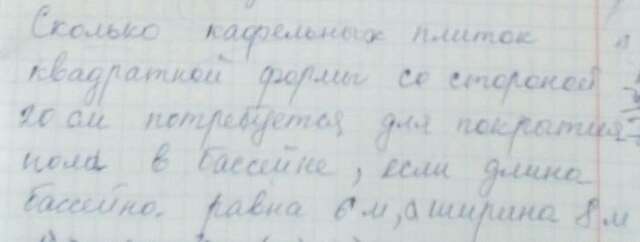 Сколько кафельных плиток
квадратной формы со стороной
20 см потребуется для покрытия
пола в бассейне, если длина
бассейно. равна 6 м, а ширина 8 м